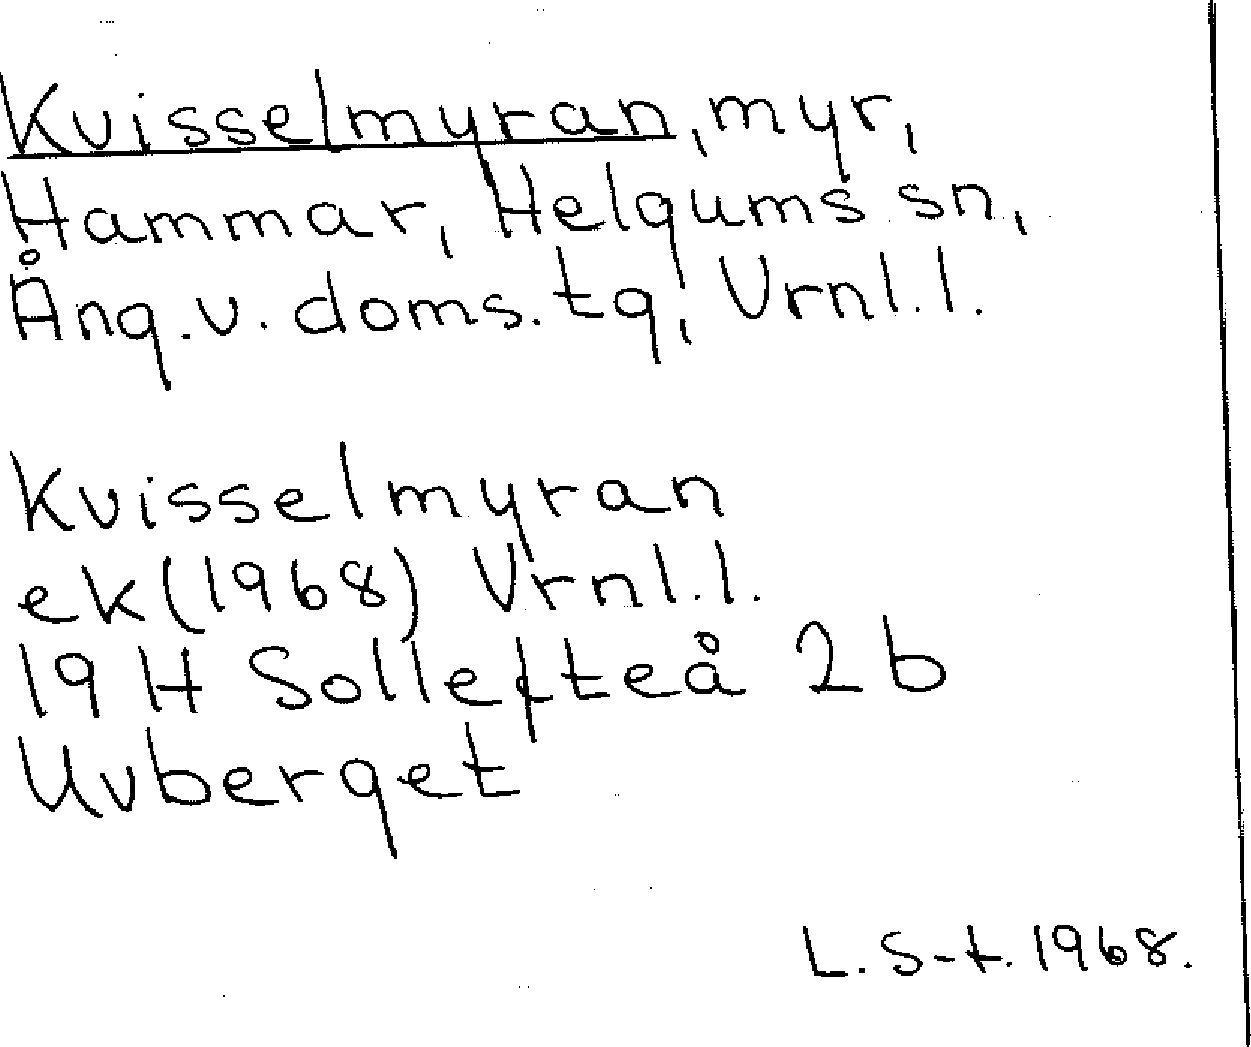 Kvisselmyran, myr,
Hammar, Helgums sn,
Ång. v. doms. tg, Vrnl. l.
Kvisselmyran
ek (1968) Vrnl. l.
19 H Sollefteå 2 b
Uvberget
L. S-t. 1968.